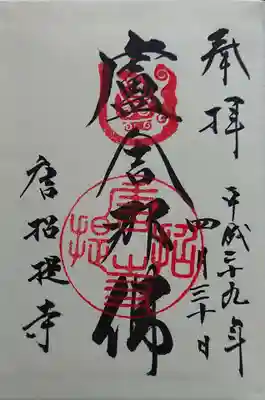 奉拝
平成二十九年
四月三十日
盧舎那佛
唐招提寺